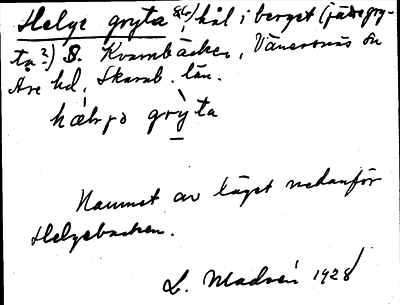 Helge gryta (86) hål i berget (jättegry-
ta?) S. Kvarnbacken, Vänersnäs sn
Åse hd, Skarab. län.
hæljə gryta
Namnet av läget nedanför
Helgebacken.
L. Modén 1928